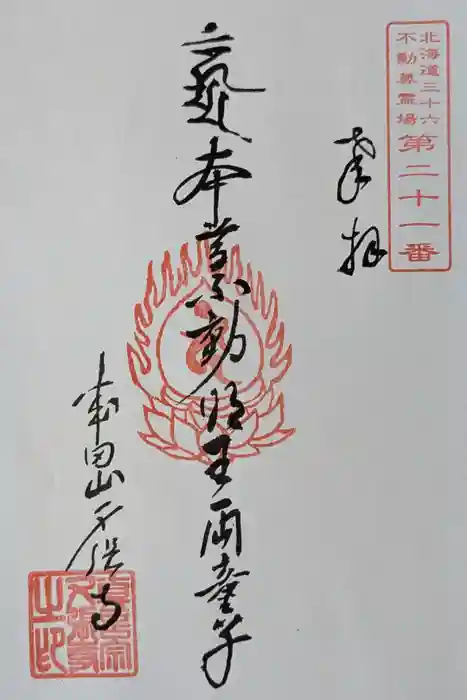 北海道三十六
不動尊霊場
第二十一番
奉拝
本尊不動明王両童子
成田山不寺